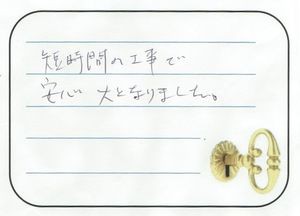 短時間の工事で
安心 大となりました。